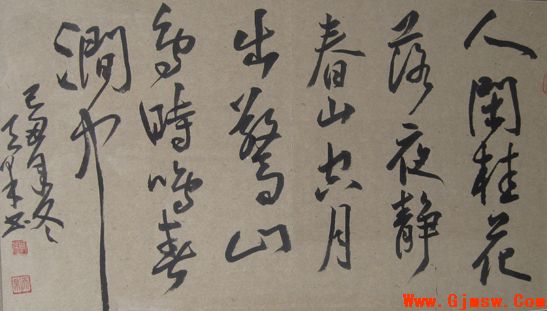 人閑桂花
落夜静
春山空月
出驚山
鳥時鳴春
澗中
己丑年冬
书
Www.Gjmsw.Com